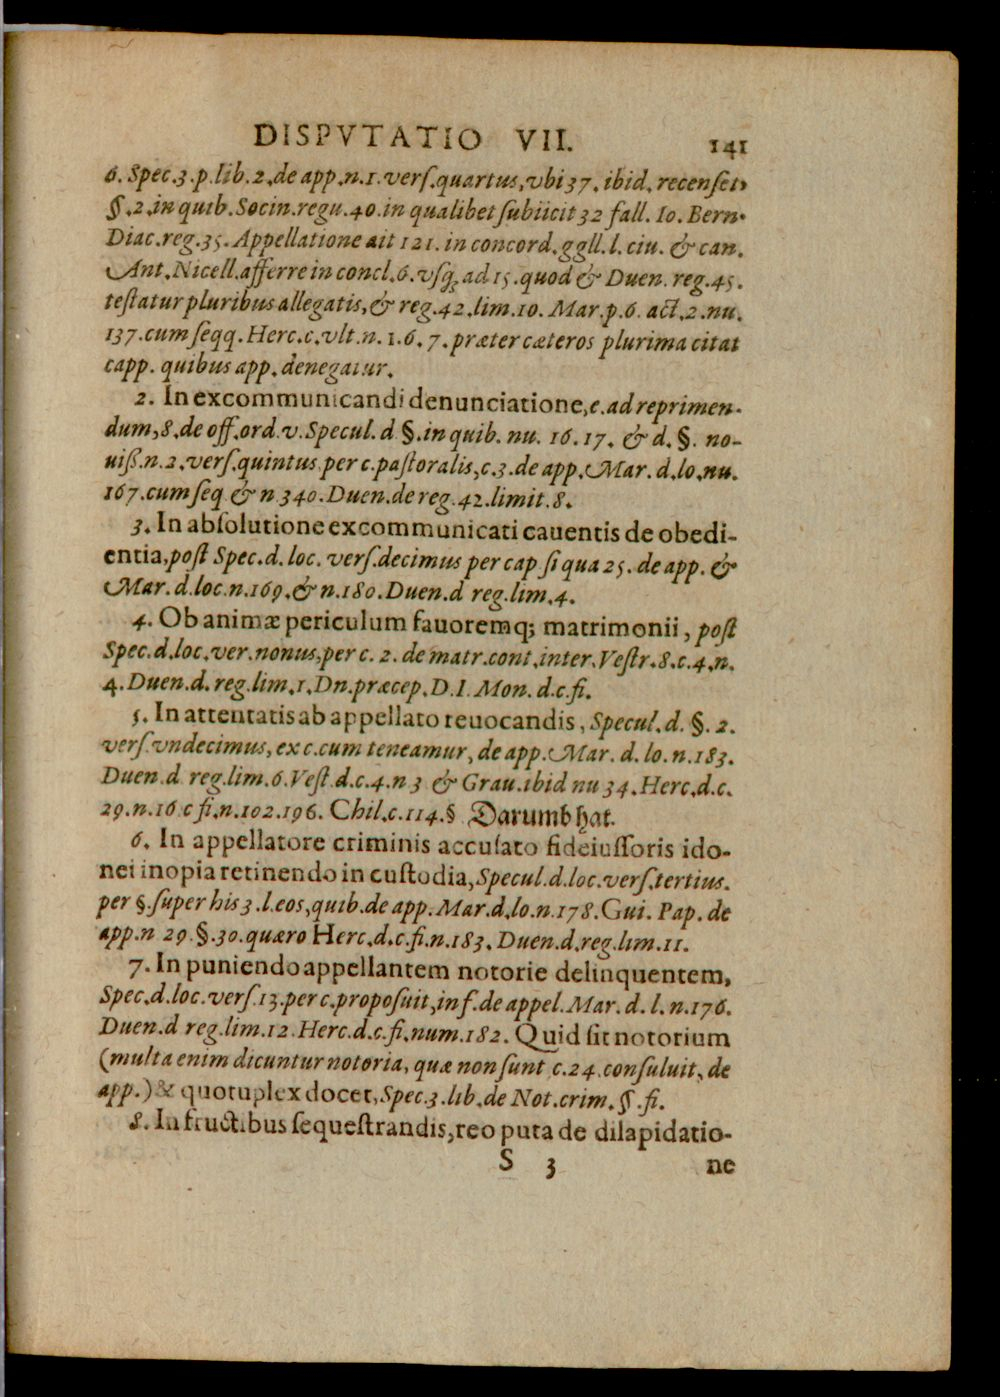 DISPVTATIO VII. 141
6. Spec.3.p.lib.2.de app.n.1.verſ.quartus,vbi 37. ibid. recenſet,
§.2.in quib.Socin.regu.40.in qualibet ſubiicit 32 fall. Io. Bern.
Diac.reg.35. Appellatione ait 121. in concord.ggll.l. ciu. & can.
Ant. Nicell.afferre in concl.6.vſq; ad 15.quod & Duen. reg.45.
teſtatur pluribus allegatis, & reg.42.lim.10. Mar.p.6. act.2.nu.
137.cum ſeqq. Herc.c.vlt.n. 1.6. 7. præter cæteros plurima citat
capp. quibus app. denegatur.
2. In excommunicandi denunciatione, c. ad reprimen-
dum,8.de off.ord.v.Specul.d §.in quib. nu. 16. 17. & d. §. no-
uiß.n.2.verſ.quintus per c.paſtoralis,c.3.de app. Mar. d.lo.nu.
167.cum ſeq & n 340. Duen.de reg.42.limit.8.
3. In abſolutione excommunicati cauentis de obedi-
entia, poſt Spec.d. loc. verſ.decimus per cap ſi qua 25. de app. &
Mar. d.loc.n.169. & n.180. Duen.d reg.lim.4.
4. Ob animæ periculum fauoremq; matrimonii, poſt
Spec.d.loc.ver.nonus,per c. 2. de matr.cont.inter. Veſtr.8.c.4.n.
4. Duen.d. reg.lim.1. Dn.præcep. D. I. Mon. d.c.fi.
5. In attentatis ab appellato reuocandis, Specul. d. §. 2.
verſ.vndecimus, ex c.cum teneamur, de app. Mar. d. lo. n.183.
Duen.d reg.lim.6.Veſt.d.c.4.n 3 & Grau.ibid nu 34. Herc.d.c.
29.n.16 c fi.n.102.196. Chil.c.114.§ Darumb hat.
6. In appellatore criminis accuſato fideiuſſoris ido-
nei inopia retinendo in cuſtodia, Specul.d.loc.verſ.tertius.
per §.ſuper his 3.l.eos,quib.de app. Mar.d.lo.n.178. Gui. Pap. de
app.n 29 §.30.quæro Herc.d.c.fi.n.183. Duen.d.reg.lim.11.
7. In puniendo appellantem notorie delinquentem,
Spec.d.loc.verſ.13.per c.propoſuit,inf.de appel. Mar. d. l. n.176.
Duen.d reg.lim.12. Herc.d.c.fi.num.182. Quid ſit notorium
(multa enim dicuntur notoria, quæ non ſunt c.24.conſuluit, de
app.) & quotuplex docet, Spec.3.lib.de Not.crim.§.fi.
8. In fructibus ſequeſtrandis, reo puta de dilapidatio-
S 3 ne